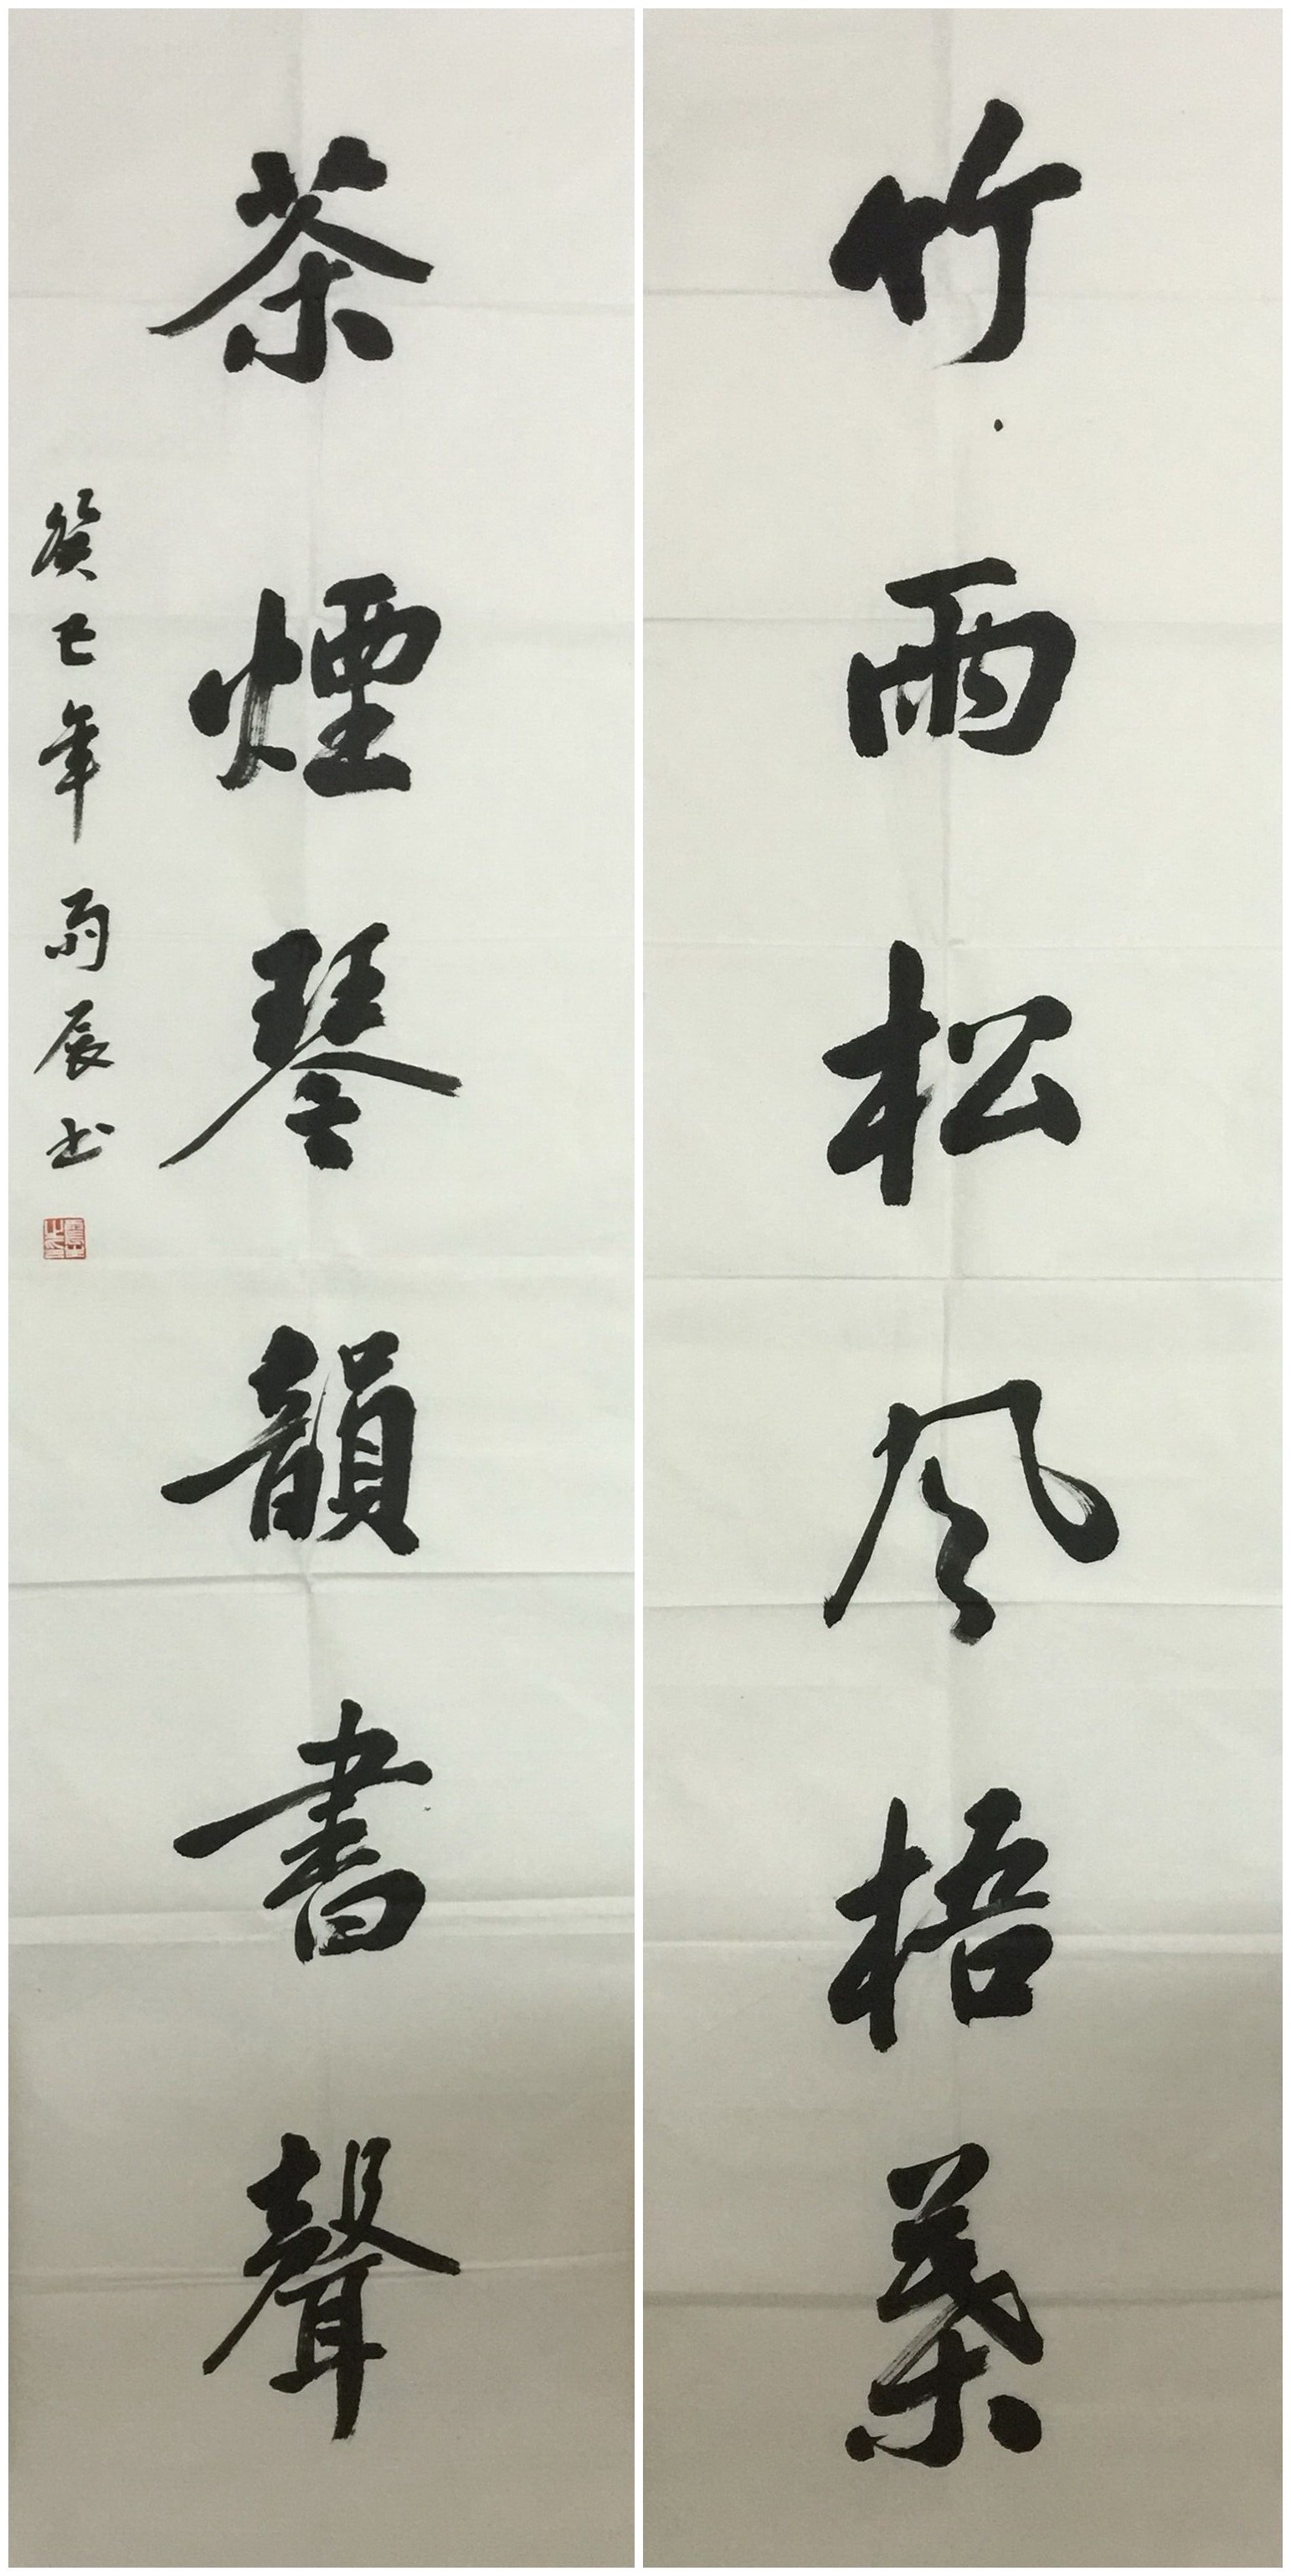 竹雨松风梧葉
茶煙琴韻書聲
癸巳年雨辰书